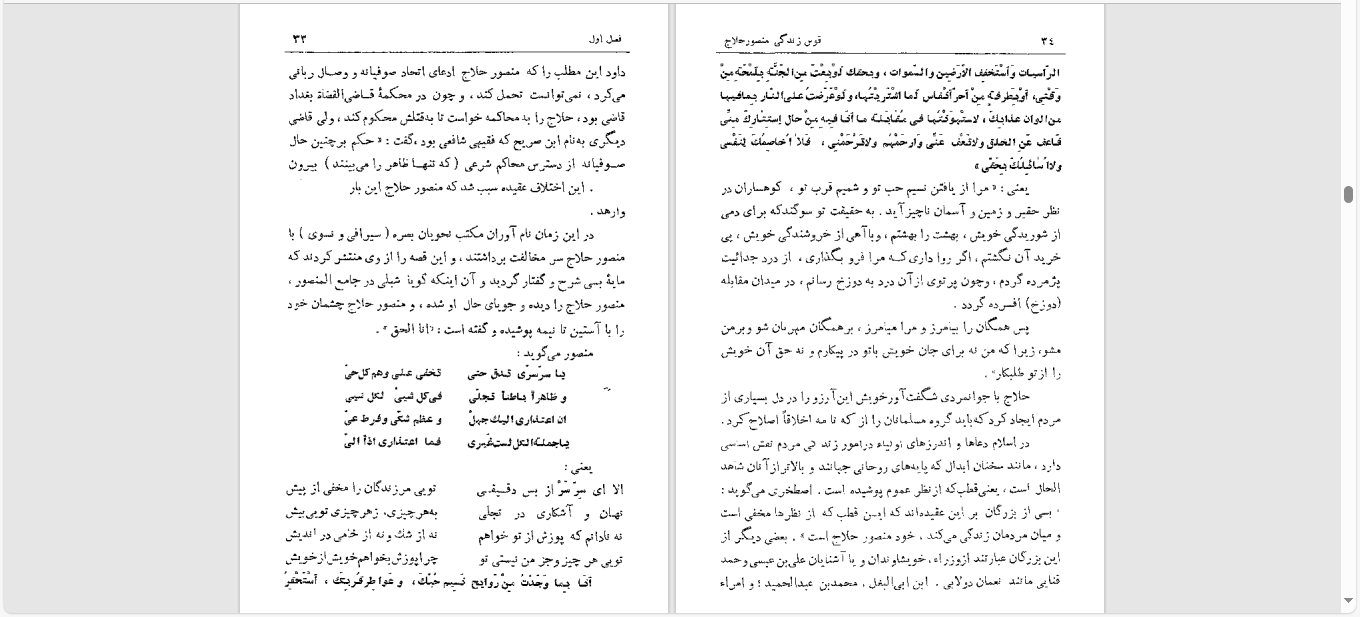 فصل اول ۳۳
داود این مطلب را که منصور حلاج ادعای اتحاد صوفیانه و وصال ربانی
می‌کرد ، نمی‌توانست تحمل کند ، و چون در محکمهٔ قاضی‌القضاة بغداد
قاضی بود، حلاج را به محاکمه خواست تا به‌قتلش محکوم کند ، ولی قاضی
دیگری به‌نام ابن صریح که فقیهی شافعی بود ،گفت : « حکم بر چنین حال
صوفیانه از دسترس محاکم شرعی ( که تنها ظاهر را می‌بینند ) بیرون
. این اختلاف عقیده سبب شد که منصور حلاج این بار
وارهد .
در این زمان نام آوران مکتب نحویان بصره ( سیرافی و نسوی ) با
منصور حلاج سر مخالفت برداشتند ، و این قصه را از وی منتشر کردند که
مایهٔ بسی شرح و گفتار گردید و آن اینکه گویا شبلی در جامع المنصور ،
منصور حلاج را دیده و جویای حال او شده ، و منصور حلاج چشمان خود
را با آستین تا نیمه پوشیده و گفته است : «انا الحق » .
منصور می‌گوید :
یا سرّ سرّی تدق حتی تخفی علی وهم کل حیّ
و ظاهراً باطناً تجلّی فی کل شیئ لکل شیی
ان اعتذاری الیك جهلٌ و عظم شکّی وفرط عیّ
یا جملة الکل لست غیری فما اعتذاری اذاً الیّ
یعنی :
الا ای سرّ سرّ از بس دقیقی تویی مر زندگان را مخفی از پیش
نهان و آشکاری در تجلی به‌هر چیزی، زهر چیزی تویی بیش
نه نادانم که پوزش از تو خواهم نه از شك و نه از خامی در اندیش
تویی هر چیز وجز من نیستی تو چرا پوزش بخواهم خویش از خویش
أَمَا بِمَا وَجَدْتُ مِنْ رَوَایِحِ نَسیمِ حُبِّكَ، وَ عَوَاطِرِ قُرْبِكَ ، أَسْتَحْقِرُ
قوس زندگی منصور حلاج ۳۴
الرّاسیات وأَسْتَخِفُّ الأَرَضینَ والسَّموات ، وبحقك لوْ بِعْتَ مِنَ الجَنَّةِ بِلَمْحَةٍ مِنْ
وَقْتی، أوْ بِطَرفةٍ مِنْ أحرّ أنْفاس لَما اشْتَرَیتُها، ولوْ عَرَضتَ علی النّار بمافیها
من الوان عذابك ، لاستهونْتُها فی مُقابَلة ما أنا فیهِ مِنْ حال إستتارِك منّی
فاعف عَنِ الخلق ولاتَعْف عَنّی وأرحَمْهُم ولاتَرحَمْنی ، فَلا أُخاصِمُكَ لِنَفْسی
ولا أُسائِلُكَ بِحَقّی »
یعنی : « مرا از یافتن نسیم حب تو و شمیم قرب تو ، کوهساران در
نظر حقیر و زمین و آسمان ناچیز آید . به حقیقت تو سوگند که برای دمی
از شوریدگی خویش ، بهشت را بهشتم ، و با آهی از خروشندگی خویش ، پی
خرید آن نگشتم ، اگر روا داری که مرا فرو بگذاری ، از درد جدائیت
پژمرده گردم ، وچون پرتوی از آن درد به دوزخ رسانم ، در میدان مقابله
(دوزخ) افسرده گردد .
پس همگان را بیامرز و مرا میامرز ، بر همگان مهربان شو و بر من
مشو، زیرا که من نه برای جان خویش باتو در پیکارم و نه حق آن خویش
را از تو طلبکار» .
حلاج با جوانمردی شگفت‌آور خویش این آرزو را در دل بسیاری از
مردم ایجاد کرد که باید گروه مسلمانان را از که تا مه اخلاقاً اصلاح کرد .
در اسلام دعاها و اندرزهای اولیاء در امور زندگی مردم نقش اساسی
دارد ، مانند سخنان ابدال که پایه‌های روحانی جهانند و بالاتر از آنان شاهد
الحال است ، یعنی قطب که از نظر عموم پوشیده است . اصطخری می‌گوید :
« بسی از بزرگان بر این عقیده‌اند که ایـن قطب که از نظرها مخفی است
و میان مردمان زندگی می‌کند ، خود منصور حلاج است » . بعضی دیگر از
این بزرگان عبارتند از وزراء ، خویشاوندان و یا آشنایان علی‌بن عیسی وحمد
قنایی مانند نعمان دولابی . ابن ابی‌البغل . محمدبن عبدالحمید ؛ و امراء